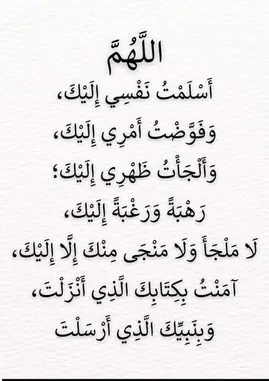 اللَّهُمَّ
أَسْلَمْتُ نَفْسِي إِلَيْكَ،
وَفَوَّضْتُ أَمْرِي إِلَيْكَ،
وَأَلْجَأْتُ ظَهْرِي إِلَيْكَ؛
رَهْبَةً وَرَغْبَةً إِلَيْكَ،
لَا مَلْجَأَ وَلَا مَنْجَى مِنْكَ إِلَّا إِلَيْكَ،
آمَنْتُ بِكِتَابِكَ الَّذِي أَنْزَلْتَ،
وَبِنَبِيِّكَ الَّذِي أَرْسَلْتَ